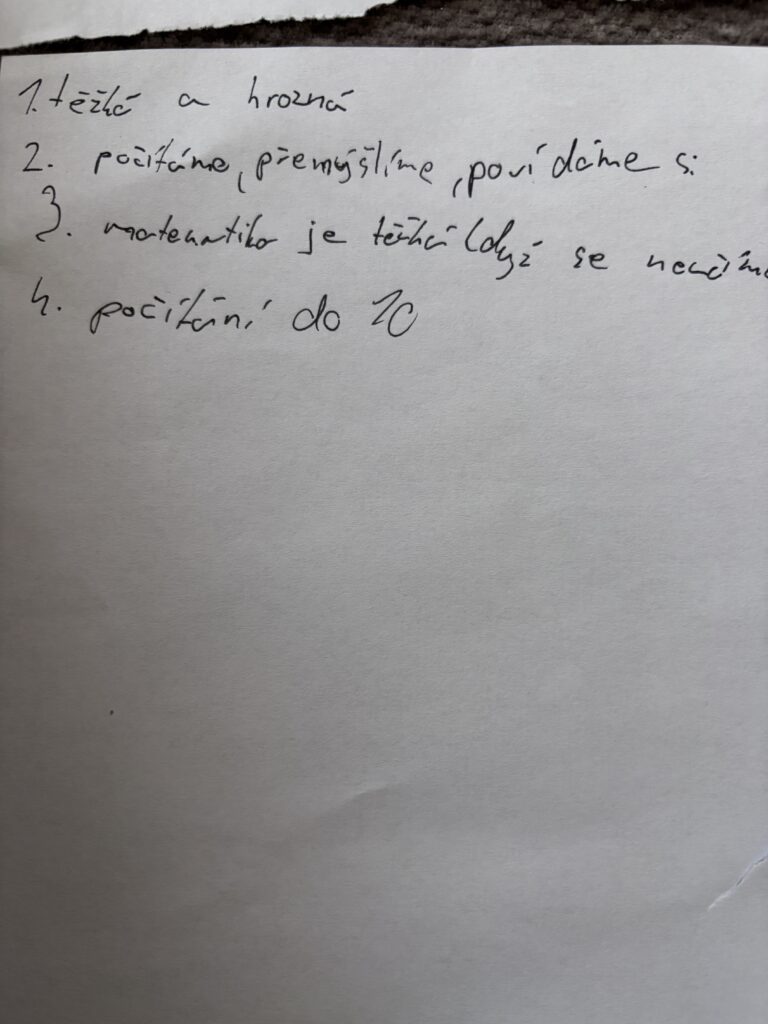 1. těžká a hrozná
2. počítáme, přemýšlíme, povídáme si
3. matematika je těžká když se neučíme
4. počítání do 10